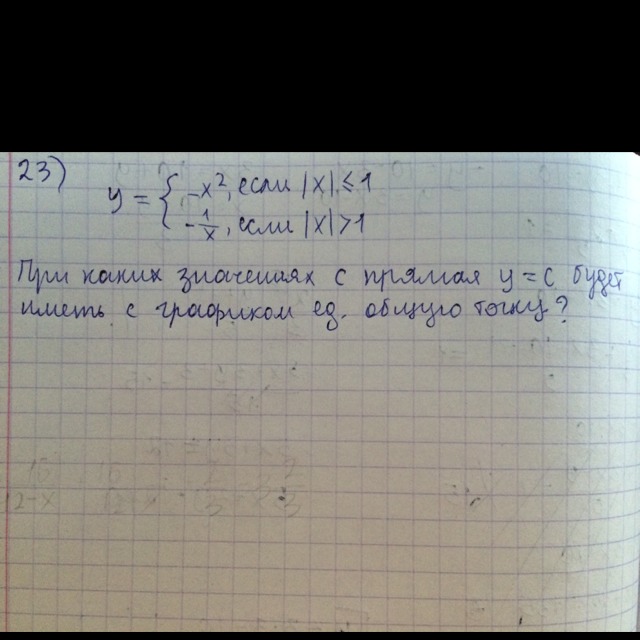 23)
y = { -x², если |x| ≤ 1
-1/x, если |x| > 1
При каких значениях с прямая y = c будет
иметь с графиком ед. общую точку?